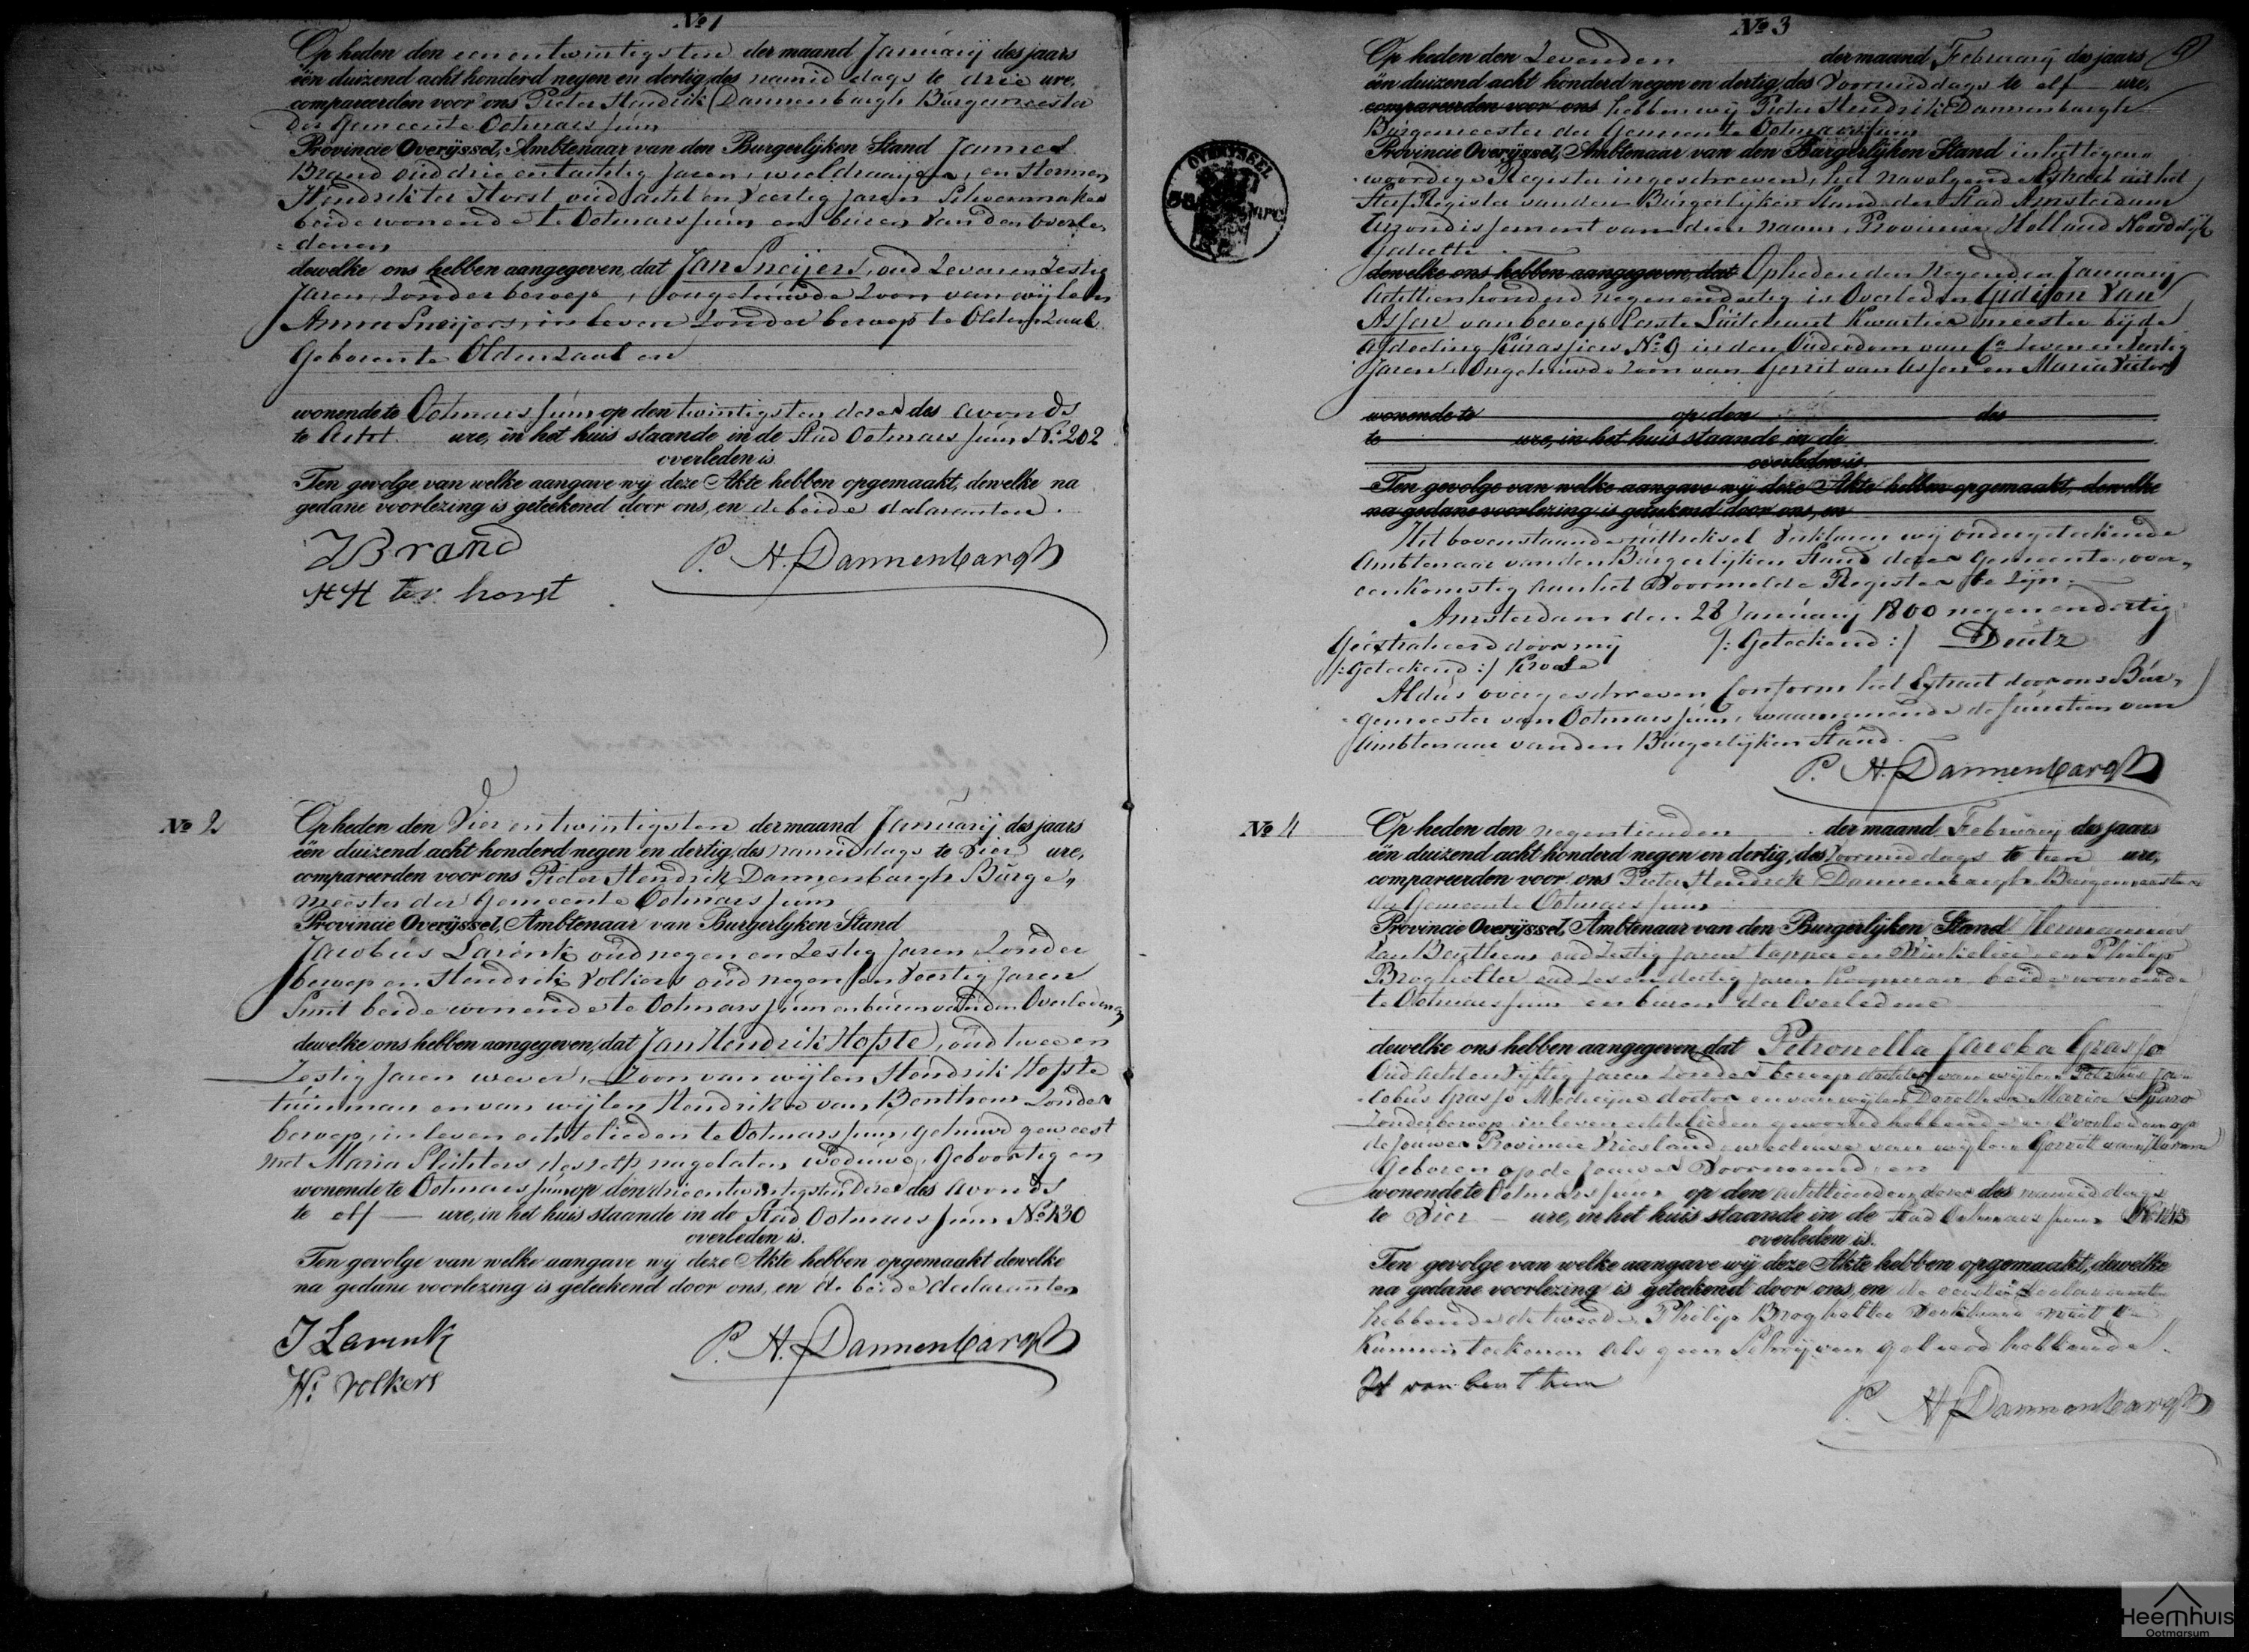 No 1
Op heden den een en twintigsten der maand Januarij des jaars
één duizend acht honderd negen en dertig, des namiddags te drie ure,
compareerden voor ons Pieter Hendrik Dannenbargh Burgemeester
der Gemeente Ootmarssum
Provincie Overijssel, Ambtenaar van den Burgerlijken Stand Jannes
Brand oud drie en tachtig Jaren, wieldraaijer, en Hermen
Hendrik ter Horst oud acht en Veertig Jaren Schoenmaker
beide wonende te Ootmarssum en buren van den overle
denen
dewelke ons hebben aangegeven, dat Jan Sneijers, oud Zeven en Zestig
Jaren, Zonder beroep, ongehuwde Zoon van wijlen
Anna Sneijers, in leven Zonder beroep te Oldenzaal
Geboren te Oldenzaal en
wonende te Ootmarssum op den twintigsten dezer des avonds
te Acht ure, in het huis staande in de Stad Ootmarssum No. 202
overleden is.
Ten gevolge van welke aangave wij deze Akte hebben opgemaakt, dewelke na
gedane voorlezing is geteekend door ons, en de beide declaranten.
J Brand
P. H. Dannenbargh
H H ter horst
No 2
Op heden den Vier en twintigsten der maand Januarij des jaars
één duizend acht honderd negen en dertig, des namiddags te Vier ure,
compareerden voor ons Pieter Hendrik Dannenbargh Burge„
meester der Gemeente Ootmarssum
Provincie Overijssel, Ambtenaar van Burgerlyken Stand
Jacobus Larink oud negen en Zestig Jaren Zonder
beroep en Hendrik Volkers oud negen en Veertig Jaren
Smit beide wonende te Ootmarssum en buren van den Overledenen
dewelke ons hebben aangegeven, dat Jan Hendrik Hofste, oud twee en
Zestig Jaren wever, Zoon van wijlen Hendrik Hofste
tuinman en van wijlen Hendrika van Benthem Zonder
beroep, in leven echtelieden te Ootmarssum, gehuwd geweest
met Maria Slichters deszelfs nagelaten weduwe, Geboortig en
wonende te Ootmarssum op den drie en twintigsten dezer des avonds
te elf ure, in het huis staande in de Stad Ootmarssum No 130
overleden is.
Ten gevolge van welke aangave wij deze Akte hebben opgemaakt dewelke
na gedane voorlezing is geteekend door ons, en de beide declaranten
J Larink
P. H. Dannenbargh
H: Volkers
No 3
Op heden den Zevenden der maand Februarij des jaars
één duizend acht honderd negen en dertig, des Voormiddags te elf ure,
compareerden voor ons hebben wij Pieter Hendrik Dannenbargh
Burgemeester der Gemeente Ootmarssum
Provincie Overijssel, Ambtenaar van den Burgerlijken Stand in het tegen„
woordige Register ingeschreven, het navolgende Extract uit het
Sterf Register van den Burgerlijken Stand der Stad Amsterdam
Arrondissement van dien naam, Provincie Holland Noordelijk
Gedeelte
OVERYSSEL
dewelke ons hebben aangegeven, dat Op heden den Negenden January
Achttienhonderd negen en dertig is Overleden Gidison Van
Assen van beroep Eerste Luitenant Kwartiermeester bij de
afdeeling Kurassiers No. 9 in den Ouderdom van Ca. Zeven en Veertig
Jaren, Ongehuwde Zoon van Gerrit van Assen en Maria
wonende te op den des
te ure, in het huis staande in de
overleden is.
Ten gevolge van welke aangave wij deze Akte hebben opgemaakt, dewelke
na gedane voorlezing is geteekend door ons, en
Het bovenstaande uittreksel Verklaren wij ondergeteekende
Ambtenaar van den Burgerlijken Stand dezer Gemeente, over„
eenkomstig aan het Voormelde Register te Zijn.
Amsterdam den 28 Januarij 1800 negen en dertig
Geëxtraheerd door mij /: Geteekend :/ Deutz
/: Geteekend :/
Aldus overgeschreven Conform het Extract door ons Bur„
gemeester van Ootmarssum, waarnemende de functien van
Ambtenaar van den Burgerlijken Stand.
P. H. Dannenbargh
No 4
Op heden den negentienden der maand Februarij des jaars
één duizend acht honderd negen en dertig, des Voormiddags te tien ure,
compareerden voor ons Pieter Hendrik Dannenbargh Burgemeester
der Gemeente Ootmarssum
Provincie Overijssel, Ambtenaar van den Burgerlijken Stand Hermannus
van Benthem oud Zestig Jaren tapper en Winkelier, en Philip
Broghotter oud Zes en dertig Jaren Koopman beide wonende
te Ootmarssum en buren der Overledene
dewelke ons hebben aangegeven, dat Petronella Jacoba Grasso
Oud acht en Vijftig Jaren Zonder beroep dochter van wijlen Petrus Ja
cobus Grasso Medicijne doctor en van wijlen Dorothea Maria
Zonder beroep, in leven echtelieden gewoond hebbende en Overleden op
de Jouwer Provincie Vriesland, weduwe van wijlen Gerrit van
Geboren op de Jouwer Voornoemd, en
wonende te Ootmarssum op den achttienden dezer des namiddags
te Vier ure, in het huis staande in de Stad Ootmarssum
overleden is.
Ten gevolge van welke aangave wij deze Akte hebben opgemaakt, dewelke
na gedane voorlezing is geteekend door ons, en de eerste declarant
hebbende de tweede Philip Broghotter Verklaard niet te
Kunnen teekenen als geen Schrijven geleerd hebbende.
H van benthem
P. H Dannenbargh
Heemhuis
Ootmarsum